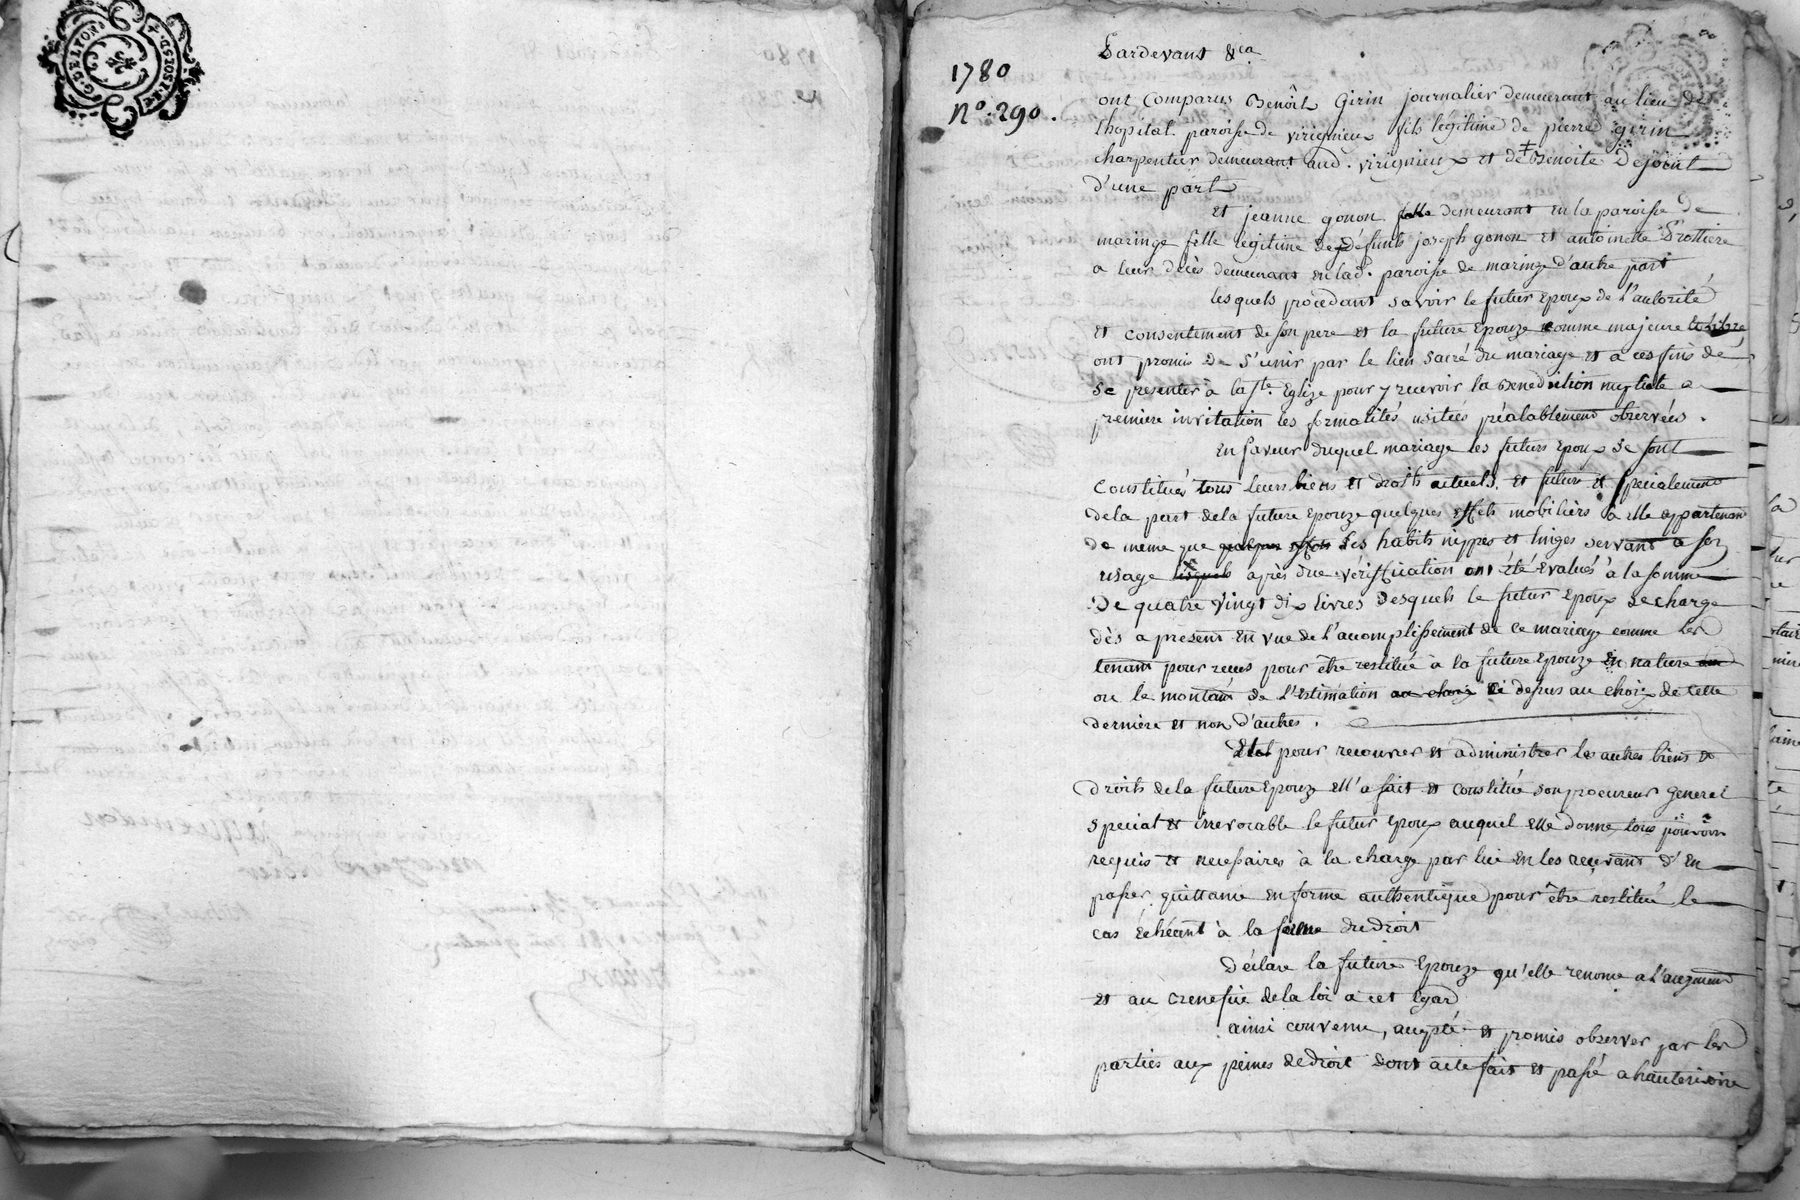 G. DE LYON
1780
N.º 290.
Pardevant &ca
ont comparus Benôit Girin journalier demeurant au lieu de
lhopital paroisse de virignieux fils légitime de pierre girin
charpentier demeurant aud. virignieux et de ‡ Benoite Dejoint
d'une part
Et jeanne gonon fille demeurant en la paroisse de
maringe fille légitime de défunts joseph gonon et antoinette Trottiere
a leur décès demeurant en lad. paroisse de maringe d'autre part
lesquels procedant savoir le futur Epoux de l'autorité
et consentement de son pere et la future Epouze comme majeure et libre
ont promis de s'unir par le lien sacré du mariage et a ces fins de
se presenter à la ste. Eglize pour y recevoir la Benediction nuptiale a
premiere invitation les formalités usitées préalablement observées.
En faveur duquel mariage les futurs Epoux se sont
Constitués tous leurs biens et droits actuels et futurs et specialement
de la part de la future Epouze quelques effets mobiliers à elle appartenans
de meme que quelques effets ses habits nippes et linges servant a son
usage lesquels après due vérification ont été évalués à la somme
De quatre vingt dix livres desquels le futur Epoux se charge
dès a present en vue de l'acomplissement de ce mariage comme les
tenant pour recus pour être restitué à la future Epouze en nature au
ou le montant de l'Estimation au choix ci dessus au choix de cette
derniere et non d'autres.
Et pour recouvrer et administrer les autres biens et
droits de la future Epouze ell'a fait et constitué son procureur general
special et irrevocable le futur epoux auquel elle donne tous pouvoirs
requis et necessaires à la charge par lui en les recevant d'en
passer quittance en forme authentique pour être restitué le
cas échéant à la forme du droit
Déclare la future Epouze qu'elle renonce a l'augment
et au benefice de la loi a cet Egard
ainsi convenu, accepté et promis observer par les
parties aux peines de droit dont acte fait et passé a hauterivoire